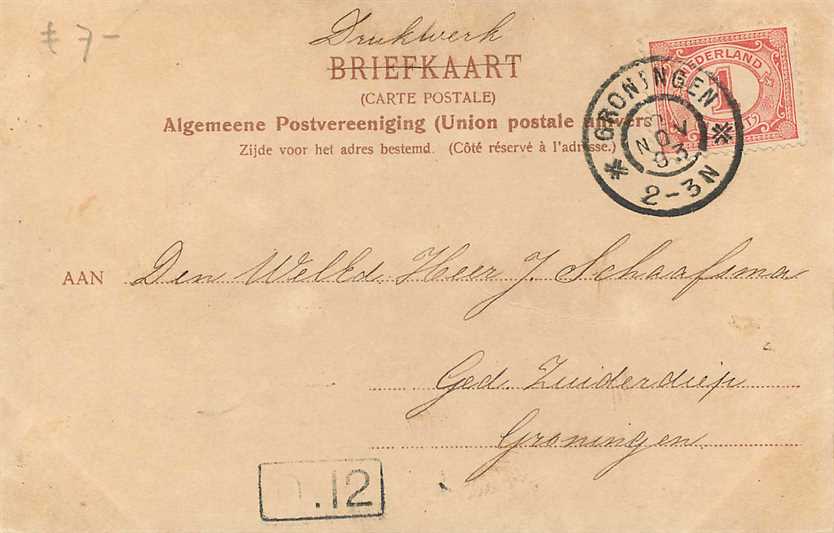 £ 7-
Drukwerk
BRIEFKAART
(CARTE POSTALE)
Algemeene Postvereeniging (Union postale
Zijde voor het adres bestemd. (Côté réservé à l'adresse.)
NEDERLAND
1
GRONINGEN
NOV
03
2-3N
AAN Den WelEd. Heer J. Schaafsma
Ged. Zuiderdiep
Groningen
.12